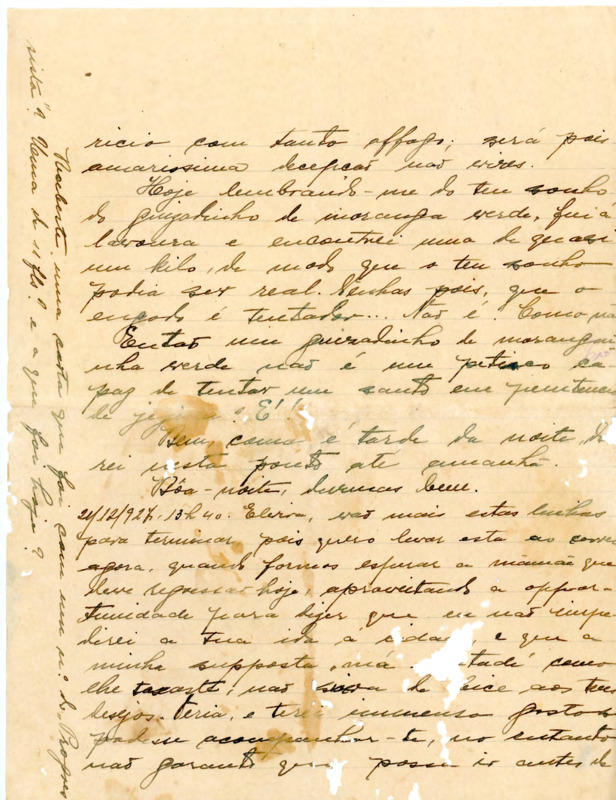 ricio com tanto affago; será pois
amarissima decepção não vires.
Hoje lembrando-me do teu sonho
do guizadinho de moranga verde, fui á
lavoura e encontrei uma de quasi
um kilo, de modo que o teu sonho
podia ser real. Venhas pois, que o
engodo é tentador... Não é? Como não
Então um guizadinho de morangui
nha verde não é um petisco ca-
paz de tentar um santo em penitencia
de jejum? É!!
Bem, como é tarde da noite,
rei nesta ponto até amanhã.
Bôa-noite, durmas bem.
24/12/927. 13h40. Elvira, vão mais estas linhas
para terminar, pois quero levar esta ao correio
agora, quando formos esperar a mamãe que
deve regressar hoje, aproveitando a oppor-
tunidade para dizer que eu não impe
direi a tua ida á cidade, e que a
minha supposta má como
lhe não de aos teus
desejos. Teria, e terei immenso gosto se
pudesse acompanhar-te, no entanto
não garanto que possa ir antes de
Recebeste uma carta que foi com um nº do "Progres
sista"? Uma de 11 fls.? e a que foi hoje?